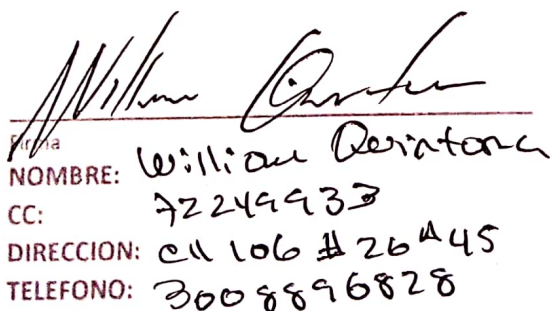 William Quintana
Firma
NOMBRE: William Quintana
CC: 72249933
DIRECCION: Cll 106 # 26A45
TELEFONO: 3008896828